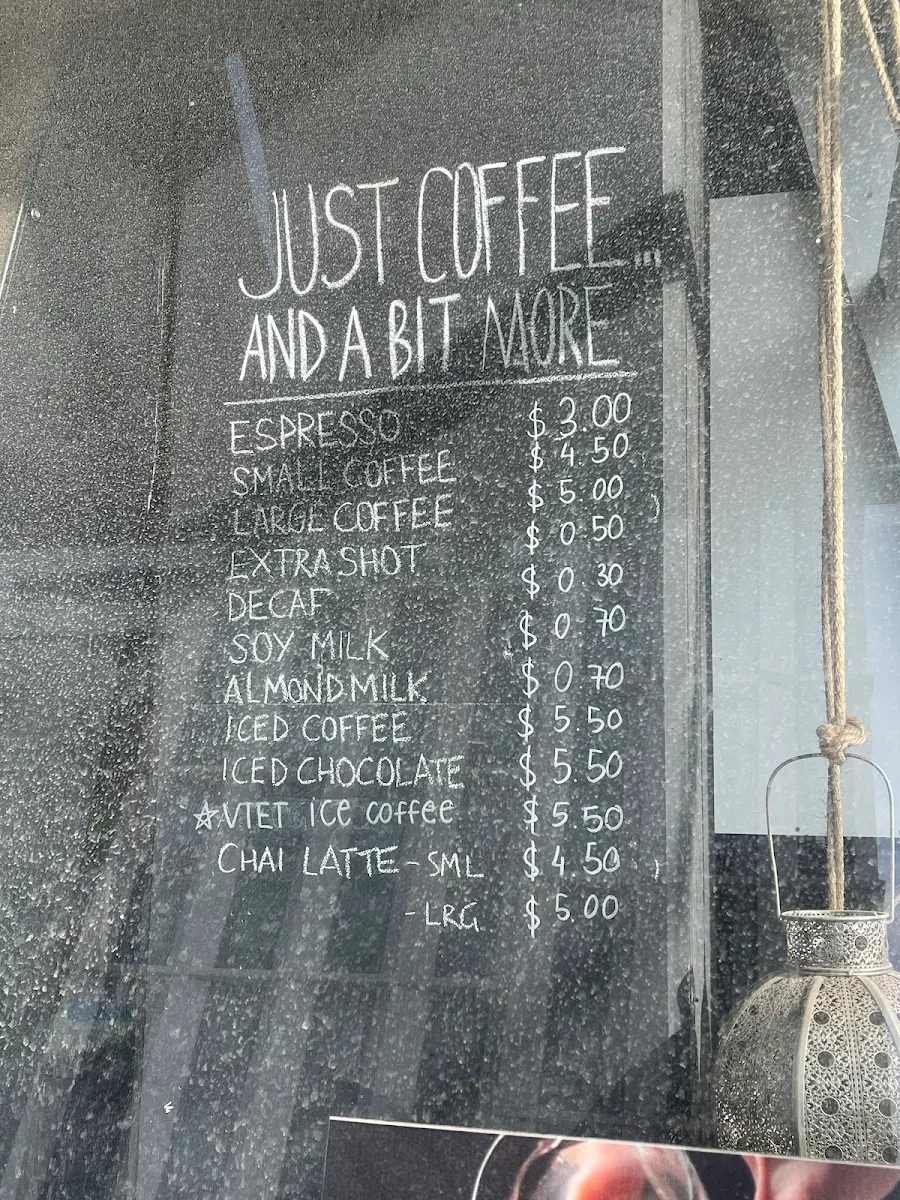 JUST COFFEE...
AND A BIT MORE
ESPRESSO $3.00
SMALL COFFEE $4.50
LARGE COFFEE $5.00
EXTRA SHOT $0.50
DECAF $0.30
SOY MILK $0.70
ALMOND MILK $0.70
ICED COFFEE $5.50
ICED CHOCOLATE $5.50
☆VIET ice coffee $5.50
CHAI LATTE - SML $4.50
- LRG $5.00